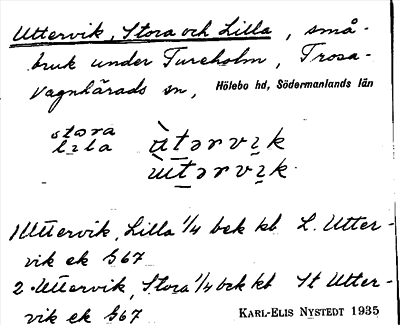 Uttervik, Stora och Lilla, små-
bruk under Tureholm, Trosa-
Vagnhärads sn, Hölebo hd, Södermanlands län
stora
lila
àtərvik
ùtərvik
1 Uttervik, Lilla 1/4 bek kt L. Utter-
vik ek G67
2 Uttervik, Stora 1/4 bek kt St Utter-
vik ek G67
KARL-ELIS NYSTEDT 1935